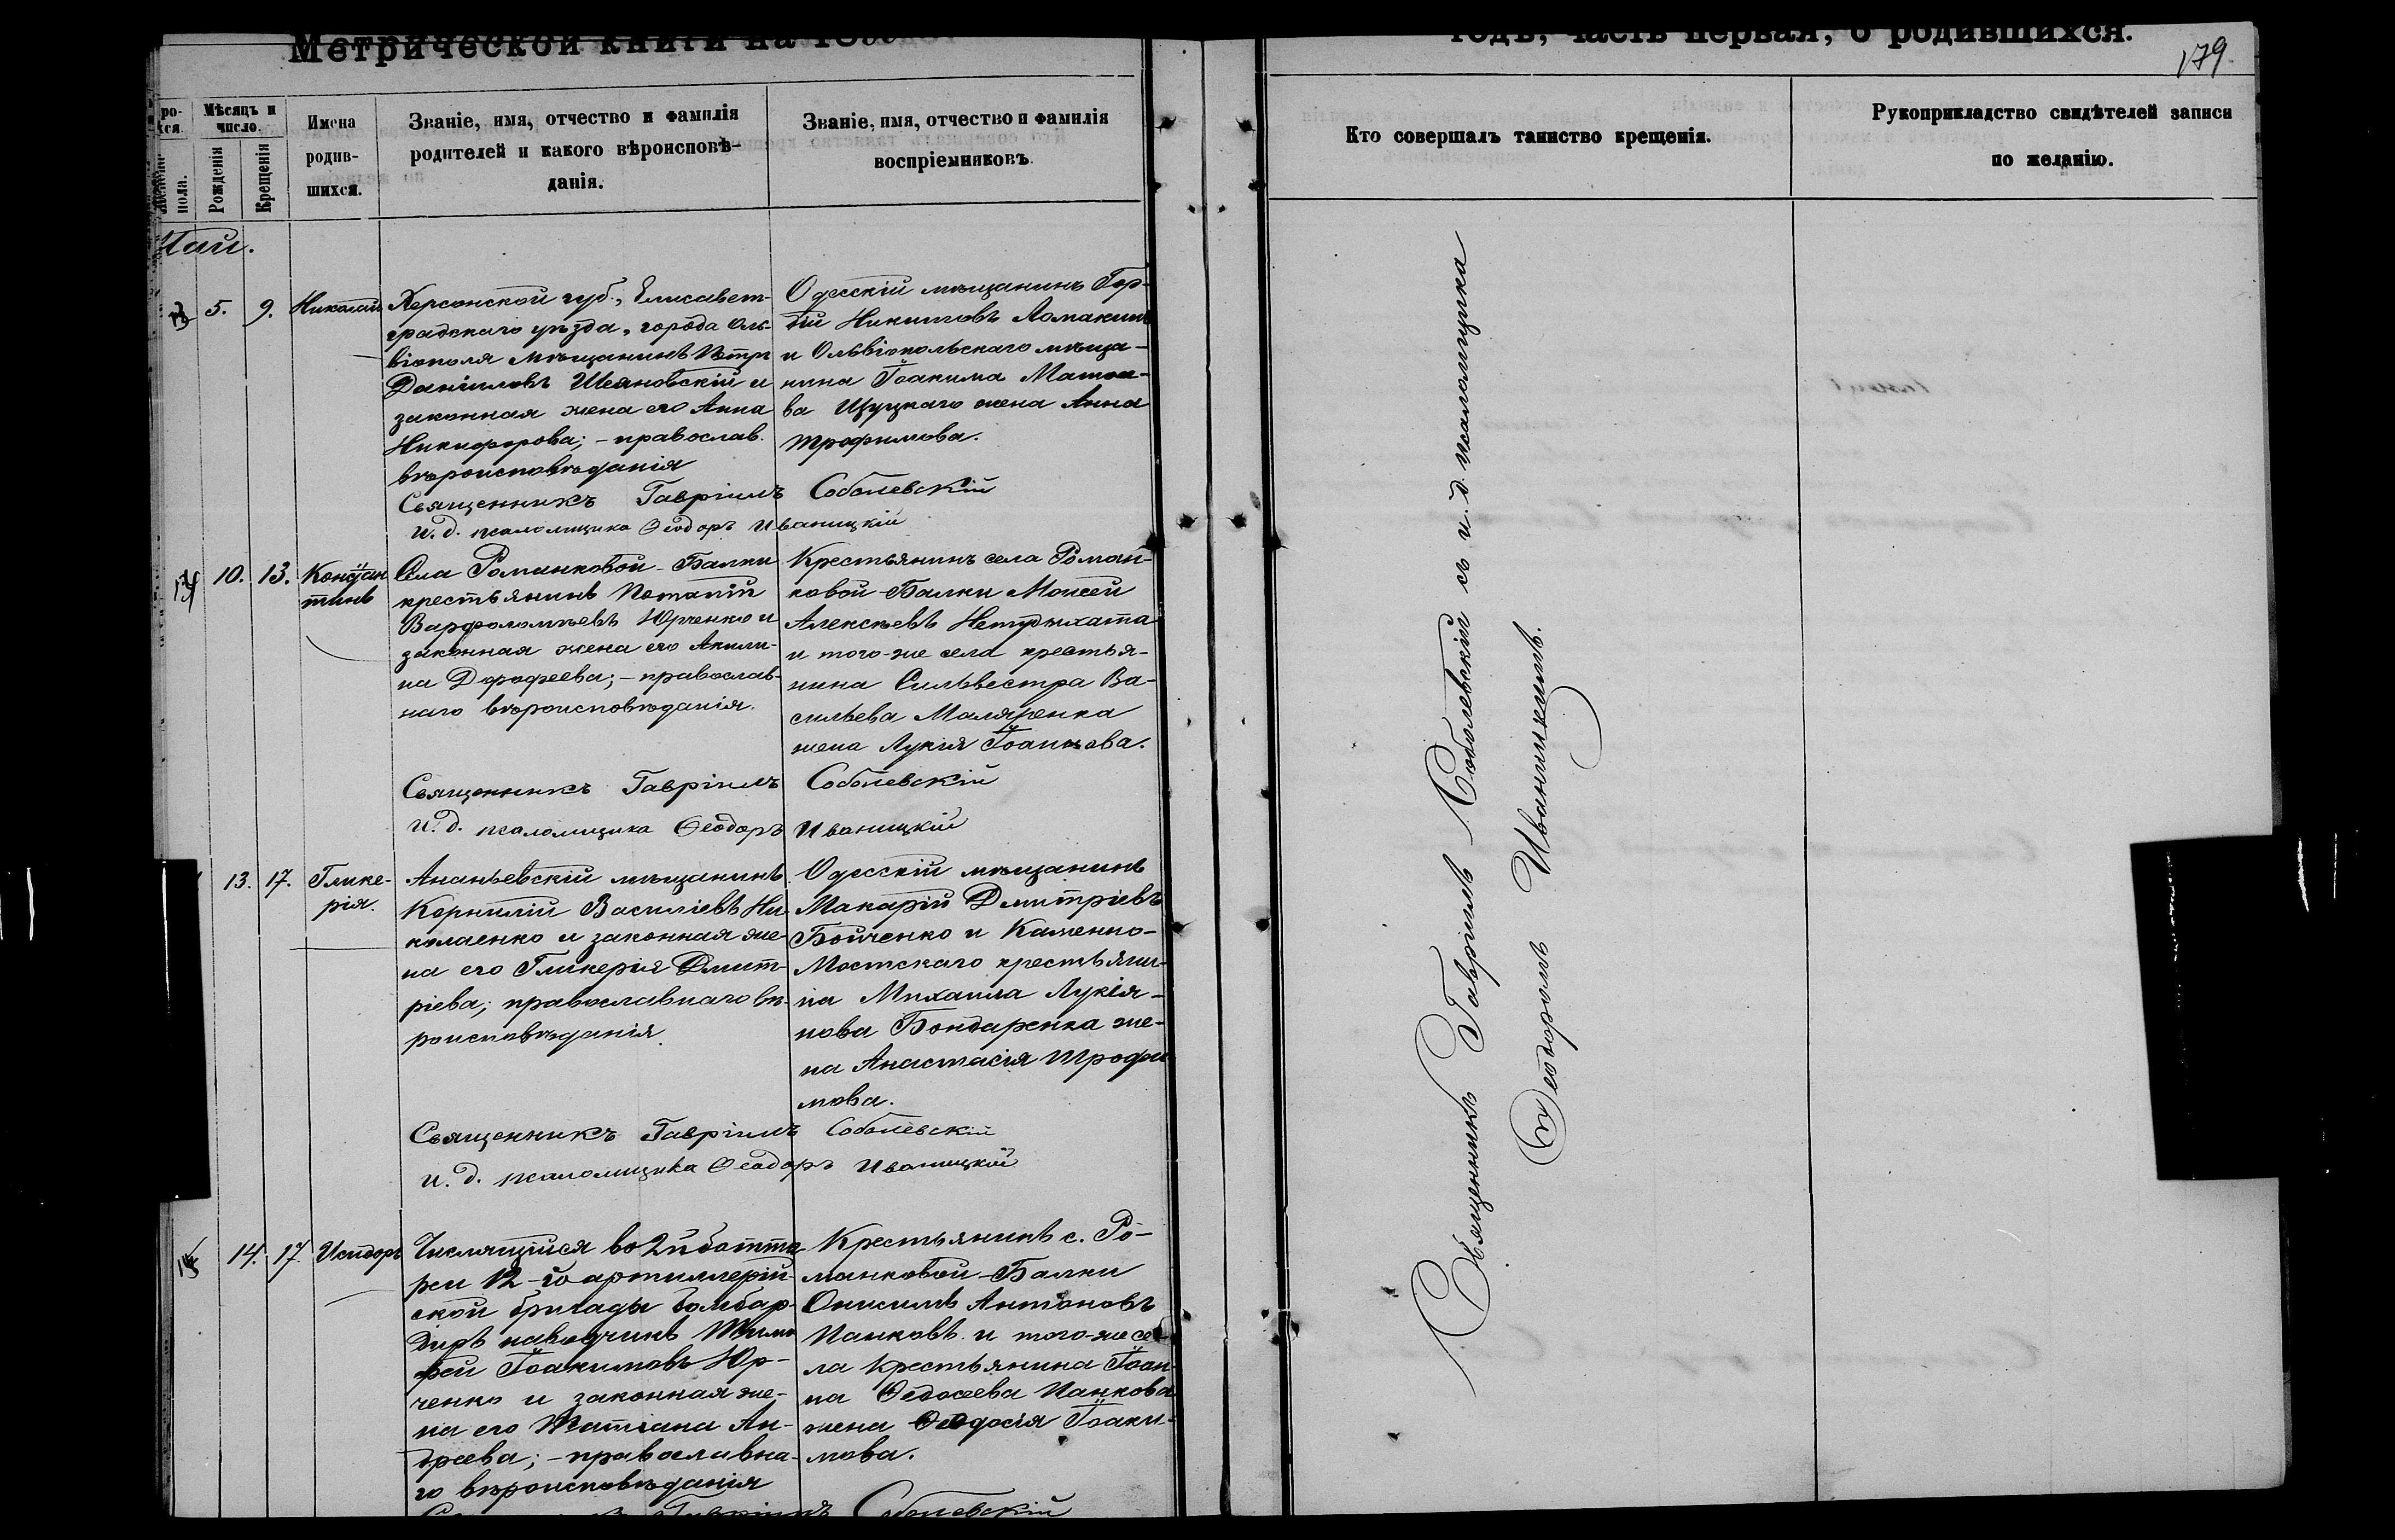 Метрической книги на 18
годъ, часть первая, о родившихся.
179.
Мѣсяцъ и
число.
Рожденія
Крещенія
Имена
родив-
шихся.
Званіе, имя, отчество и фамилія
родителей и какого вѣроисповѣ-
данія.
Званіе, имя, отчество и фамилія
воспріемниковъ.
Кто совершалъ таинство крещенія.
Рукоприкладство свидѣтелей записи
по желанію.
пола.
Маи.
5. 9. Николай
Херсонской губ., Елисавет-
градскаго уѣзда, города Оль-
віополя мѣщанинъ Петръ
Даніиловъ и
законная жена его Анна
Никифорова; - православ.
вѣроисповѣданія
Одесскій мѣщанинъ Гор-
дій Никитовъ Ломакинъ
и Ольвіопольскаго мѣща-
нина Іоакима
ва Щуцкаго жена Анна
Трофимова.
Священникъ Гавріилъ Соболевскій
и. д. псаломщика Ѳеодоръ Иваницкій
10. 13. Констан
тинъ
Села Романковой-Балки
крестьянинъ Потапій
Варфоломѣевъ Юрченко и
законная жена его Акили-
на Дорофеева; - православ-
наго вѣроисповѣданія.
Крестьянинъ села Роман-
ковой-Балки Моисей
Алексѣевъ Нетудыхата
и того-же села крестья-
нина Сильвестра Ва-
сильева Маляренка
жена Лукія Іоаннова.
Священникъ Гавріилъ Соболевскій
и. д. псаломщика Ѳеодоръ Иваницкій
13. 17. Глике-
рія.
Ананьевскій мѣщанинъ
Корнилій Василіевъ Ни-
колаенко и законная же-
на его Гликерія Дмит-
ріева; православнаго вѣ-
роисповѣданія.
Одесскій мѣщанинъ
Макарій Дмитріевъ
Бойченко и Каменно-
Мостскаго крестьяни-
на Михаила Лукія-
нова Бондаренка же-
на Анастасія Трофи-
мова.
Священникъ Гавріилъ Соболевскій
и. д. псаломщика Ѳеодоръ Иваницкій
14. 17. Исидоръ
Числящійся во 2й батта
реи 12-й артиллерій-
ской бригады бомбар-
диръ наводчикъ Тимо
фей Іоакимовъ Юр-
ченко и законная же-
на его Татіана Ан-
дреева; - православна-
го вѣроисповѣданія
Крестьянинъ с. Ро-
манковой-Балки
Онисимъ Антоновъ
Панковъ и того-же се-
ла крестьянина Іоан-
на Ѳедосеева Панкова
жена Ѳеодосія Іоаки-
мова.
Гавріилъ Соболевскій
Священникъ Гавріилъ Соболевскій съ и. д. псаломщика
Ѳеодоромъ Иваницкимъ.